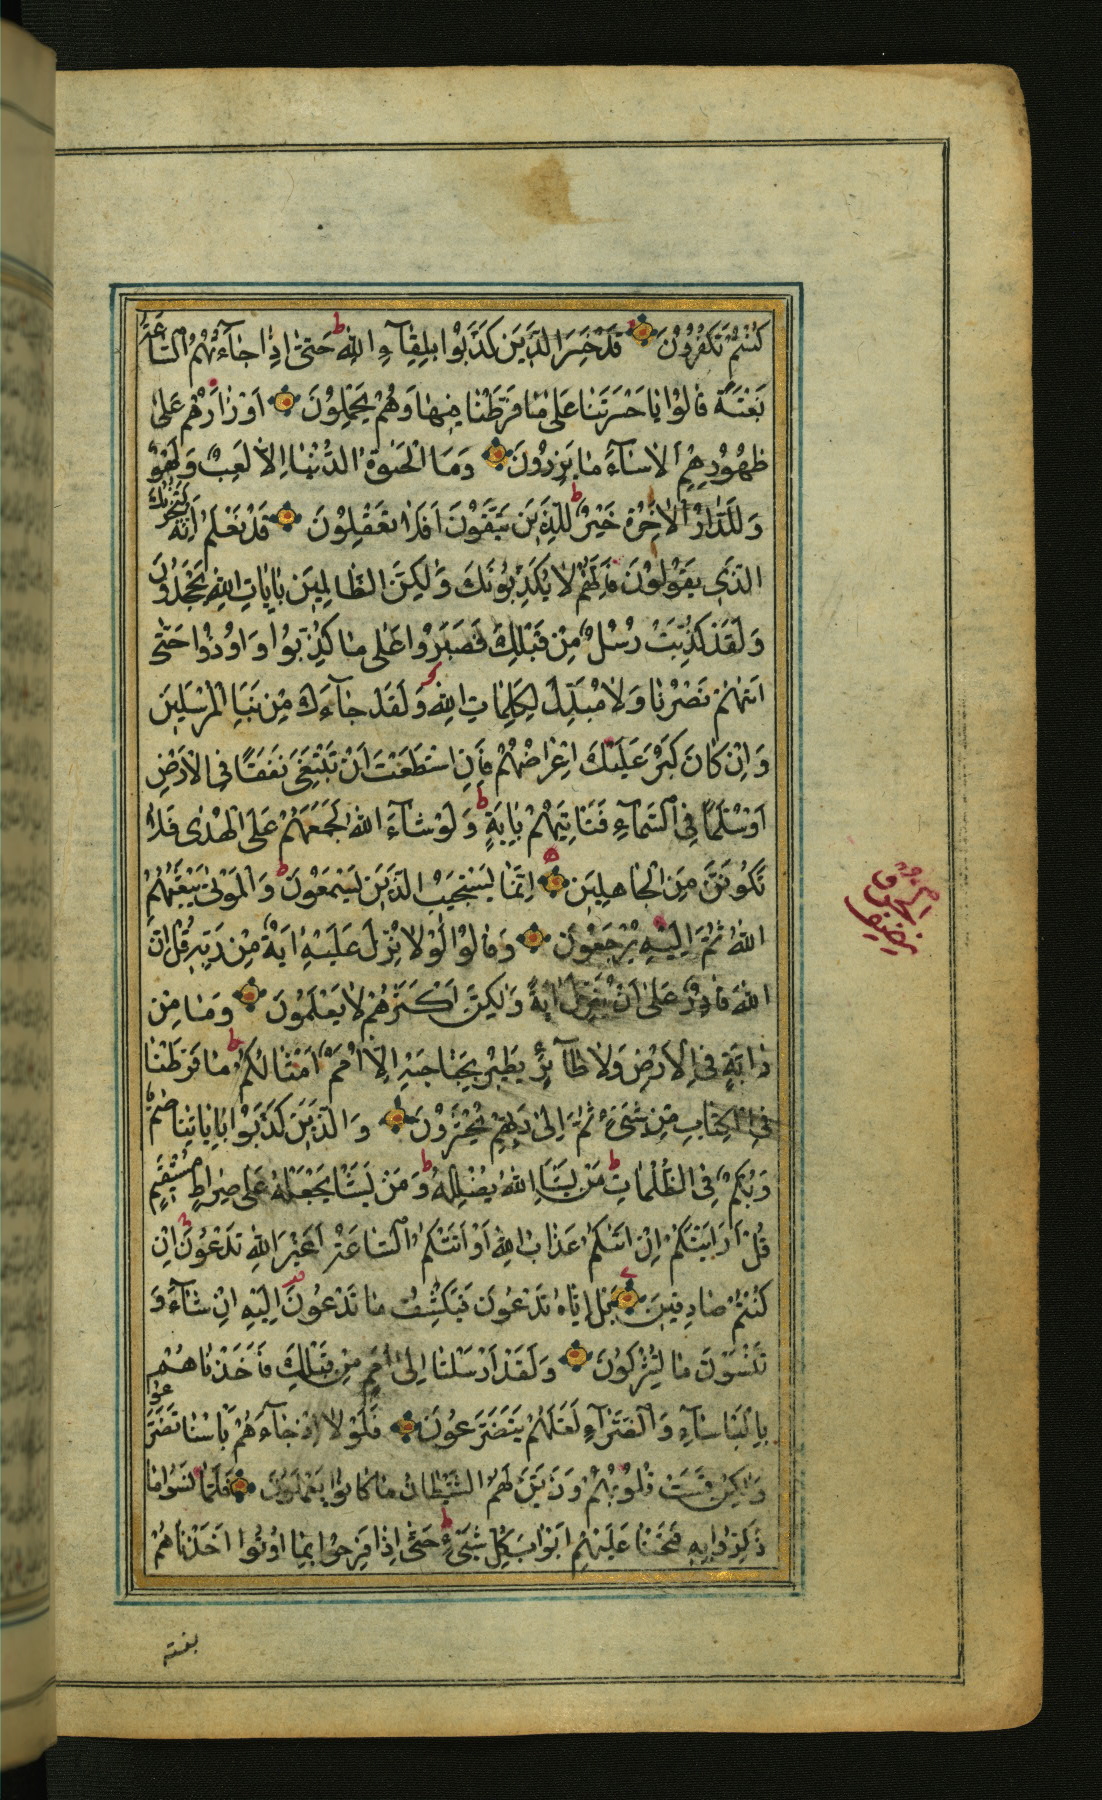 كُنْتُمْ تَكْفُرُونَ قَدْ خَسِرَ الَّذِينَ كَذَّبُوا بِلِقَآءِ اللّٰهِ حَتّٰى اِذَا جَآءَتْهُمُ السَّاعَةُ
بَغْتَةً قَالُوا يَا حَسْرَتَنَا عَلٰى مَا فَرَّطْنَا فِيهَا وَهُمْ يَحْمِلُونَ اَوْزَارَهُمْ عَلٰى
ظُهُورِهِمْ اَلَا سَآءَ مَا يَزِرُونَ وَمَا الْحَيٰوةُ الدُّنْيَا اِلَّا لَعِبٌ وَلَهْوٌ
وَلَلدَّارُ الْاٰخِرَةُ خَيْرٌ لِلَّذِينَ يَتَّقُونَ اَفَلَا تَعْقِلُونَ قَدْ نَعْلَمُ اِنَّهُ لَيَحْزُنُكَ
الَّذِي يَقُولُونَ فَاِنَّهُمْ لَا يُكَذِّبُونَكَ وَلٰكِنَّ الظَّالِمِينَ بِاٰيَاتِ اللّٰهِ يَجْحَدُونَ
وَلَقَدْ كُذِّبَتْ رُسُلٌ مِنْ قَبْلِكَ فَصَبَرُوا عَلٰى مَا كُذِّبُوا وَاُوذُوا حَتّٰى
اَتٰهُمْ نَصْرُنَا وَلَا مُبَدِّلَ لِكَلِمَاتِ اللّٰهِ وَلَقَدْ جَآءَكَ مِنْ نَبَاِ الْمُرْسَلِينَ
وَاِنْ كَانَ كَبُرَ عَلَيْكَ اِعْرَاضُهُمْ فَاِنِ اسْتَطَعْتَ اَنْ تَبْتَغِيَ نَفَقًا فِي الْاَرْضِ
اَوْ سُلَّمًا فِي السَّمَآءِ فَتَاْتِيَهُمْ بِاٰيَةٍ وَلَوْ شَآءَ اللّٰهُ لَجَمَعَهُمْ عَلَى الْهُدٰى فَلَا
تَكُونَنَّ مِنَ الْجَاهِلِينَ اِنَّمَا يَسْتَجِيبُ الَّذِينَ يَسْمَعُونَ وَالْمَوْتٰى يَبْعَثُهُمُ
اللّٰهُ ثُمَّ اِلَيْهِ يُرْجَعُونَ وَقَالُوا لَوْلَا نُزِّلَ عَلَيْهِ اٰيَةٌ مِنْ رَبِّهِ قُلْ اِنَّ
اللّٰهَ قَادِرٌ عَلٰى اَنْ يُنَزِّلَ اٰيَةً وَلٰكِنَّ اَكْثَرَهُمْ لَا يَعْلَمُونَ وَمَا مِنْ
دَابَّةٍ فِي الْاَرْضِ وَلَا طَآئِرٍ يَطِيرُ بِجَنَاحَيْهِ اِلَّا اُمَمٌ اَمْثَالُكُمْ مَا فَرَّطْنَا
فِي الْكِتَابِ مِنْ شَيْءٍ ثُمَّ اِلٰى رَبِّهِمْ يُحْشَرُونَ وَالَّذِينَ كَذَّبُوا بِاٰيَاتِنَا صُمٌّ
وَبُكْمٌ فِي الظُّلُمَاتِ مَنْ يَشَاِ اللّٰهُ يُضْلِلْهُ وَمَنْ يَشَاْ يَجْعَلْهُ عَلٰى صِرَاطٍ مُسْتَقِيمٍ
قُلْ اَرَاَيْتَكُمْ اِنْ اَتٰكُمْ عَذَابُ اللّٰهِ اَوْ اَتَتْكُمُ السَّاعَةُ اَغَيْرَ اللّٰهِ تَدْعُونَ اِنْ
كُنْتُمْ صَادِقِينَ بَلْ اِيَّاهُ تَدْعُونَ فَيَكْشِفُ مَا تَدْعُونَ اِلَيْهِ اِنْ شَآءَ وَ
تَنْسَوْنَ مَا تُشْرِكُونَ وَلَقَدْ اَرْسَلْنَا اِلٰى اُمَمٍ مِنْ قَبْلِكَ فَاَخَذْنَاهُمْ
بِالْبَاْسَآءِ وَالضَّرَّآءِ لَعَلَّهُمْ يَتَضَرَّعُونَ فَلَوْلَا اِذْ جَآءَهُمْ بَاْسُنَا تَضَرَّعُوا
وَلٰكِنْ قَسَتْ قُلُوبُهُمْ وَزَيَّنَ لَهُمُ الشَّيْطَانُ مَا كَانُوا يَعْمَلُونَ فَلَمَّا نَسُوا مَا
ذُكِّرُوا بِهِ فَتَحْنَا عَلَيْهِمْ اَبْوَابَ كُلِّ شَيْءٍ حَتّٰى اِذَا فَرِحُوا بِمَا اُوتُوا اَخَذْنَاهُمْ
بغتة